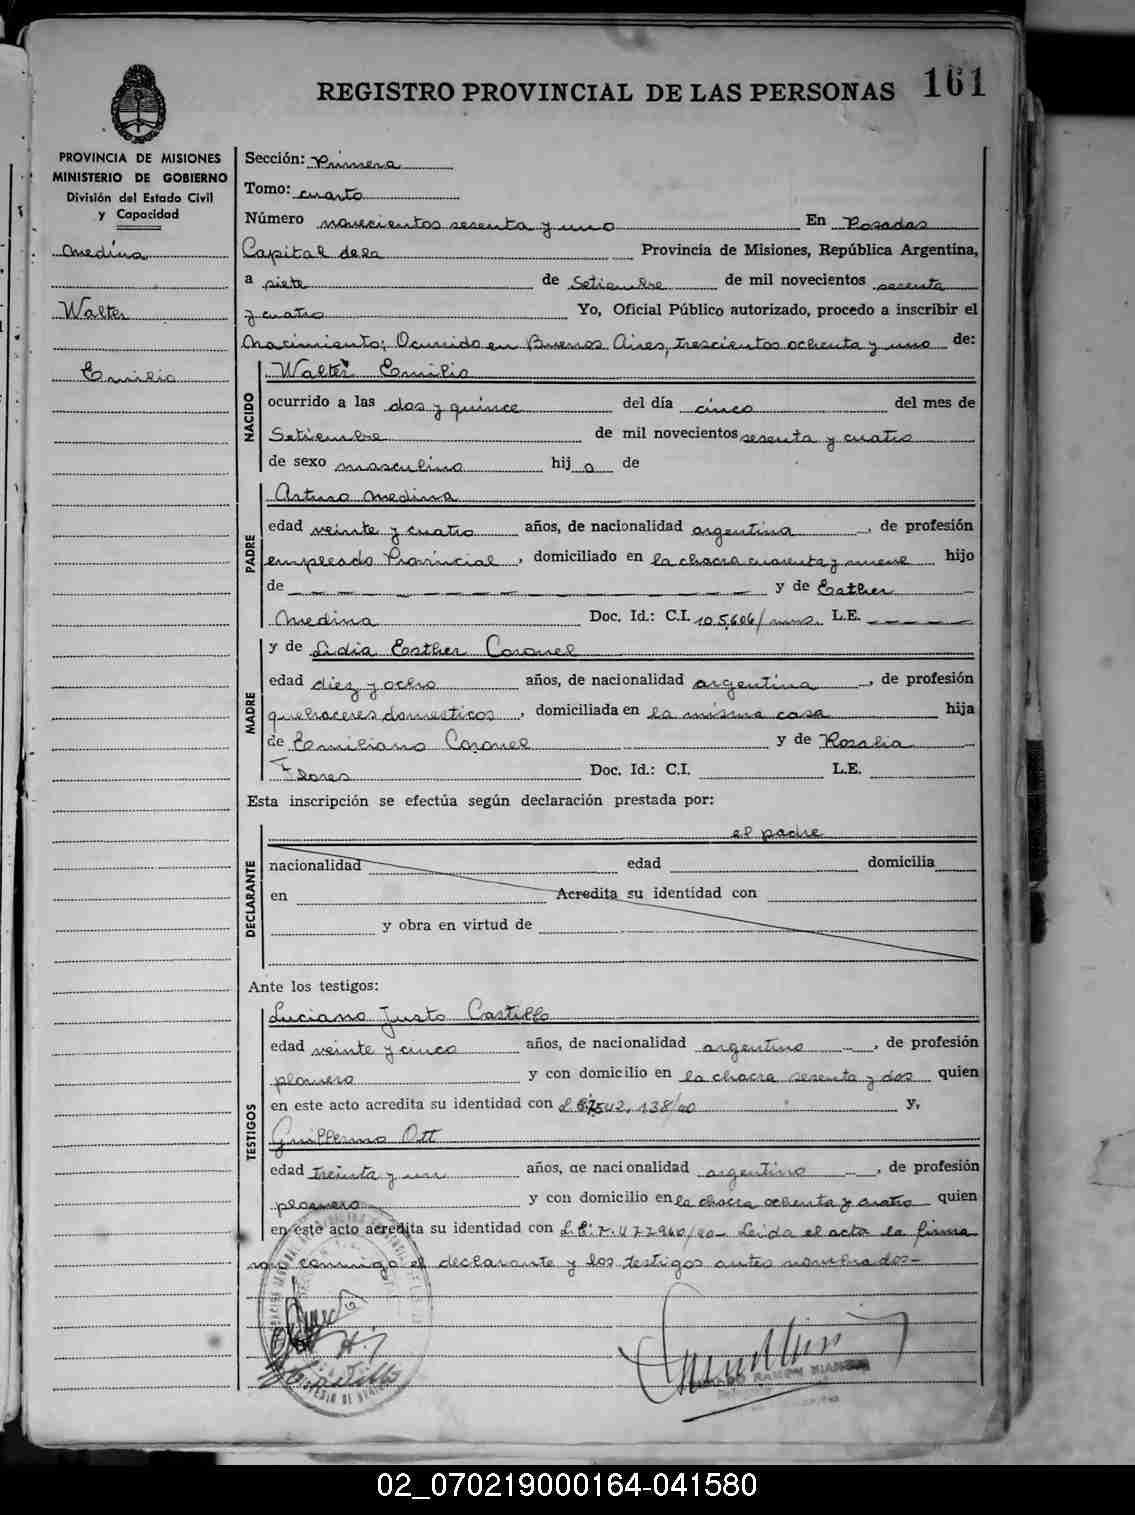 REGISTRO PROVINCIAL DE LAS PERSONAS 161
PROVINCIA DE MISIONES
MINISTERIO DE GOBIERNO
División del Estado Civil
y Capacidad
Medina
Walter
Emilio
Sección: Primera
Tomo: cuarto
Número novecientos sesenta y uno En Posadas
Capital dela Provincia de Misiones, República Argentina,
a siete de Setiembre de mil novecientos sesenta
y cuatro Yo, Oficial Público autorizado, procedo a inscribir el
Nacimiento; Ocurrido en Buenos Aires, trescientos ochenta y uno de:
NACIDO
Walter Emilio
ocurrido a las dos y quince del día cinco del mes de
Setiembre de mil novecientos sesenta y cuatro
de sexo masculino hij o de
PADRE
Arturo Medina
edad veinte y cuatro años, de nacionalidad argentina, de profesión
empleado Provincial, domiciliado en la chacra cuarenta y nueve hijo
de — — — — — — — — — — y de Esther
Medina Doc. Id.: C.I. 105.606/ L.E. — — — — —
MADRE
y de Lidia Esther Coronel
edad diez y ocho años, de nacionalidad argentina, de profesión
quehaceres domesticos, domiciliada en la misma casa hija
de Emiliano Coronel y de Rosalia
Flores Doc. Id.: C.I. L.E.
Esta inscripción se efectúa según declaración prestada por:
DECLARANTE
el padre
nacionalidad edad domicilia
en Acredita su identidad con
y obra en virtud de
Ante los testigos:
TESTIGOS
Luciano Justo Castillo
edad veinte y cinco años, de nacionalidad argentino, de profesión
plomero y con domicilio en la chacra sesenta y dos quien
en este acto acredita su identidad con L.E. 7.542.138/40 y,
Guillermo Ott
edad treinta y un años, de nacionalidad argentino, de profesión
plomero y con domicilio en la chacra ochenta y cuatro quien
en este acto acredita su identidad con L.E. 7.477.960/40- Leida el acta la firma
conmigo el declarante y los testigos antes nombrados-
Castillo
RAMON
02_070219000164-041580